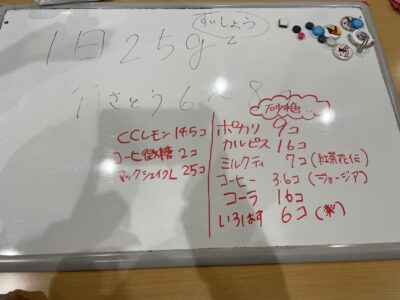 すいしょう
1日25gと
角ざとう6〜8コ
砂糖
CCレモン 14.5コ
コーヒー微糖 2コ
マックシェイクL 25コ
ポカリ 9コ
カルピス 16コ
ミルクティ 7コ(紅茶花伝)
コーヒー 3.6コ(ジョージア)
コーラ 16コ
いろはす 6コ(梨)